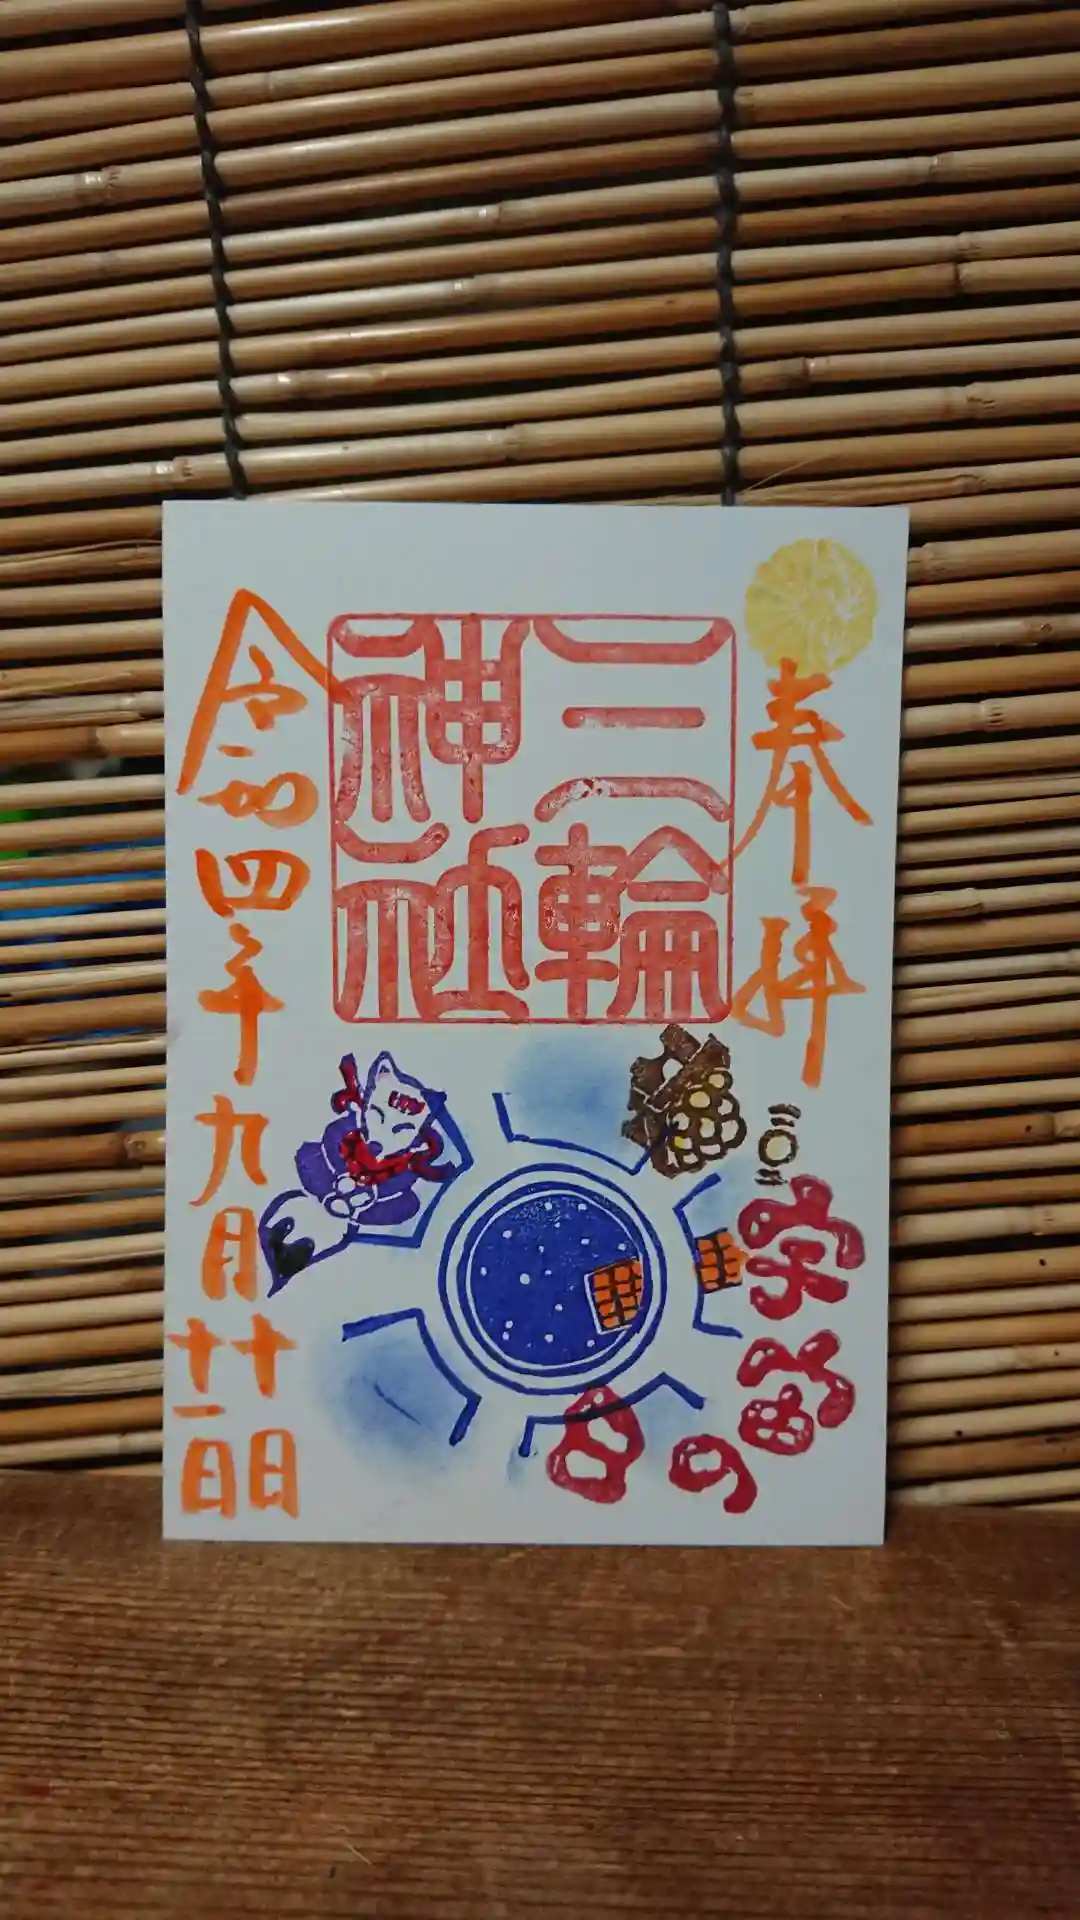 奉拝
宇宙の日
三輪
神社
令和四年九月十日
十一日